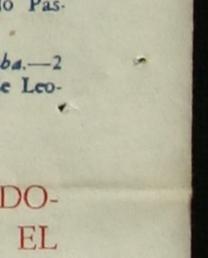 o Pas-
ba.—2
e Leo-
DO-
EL